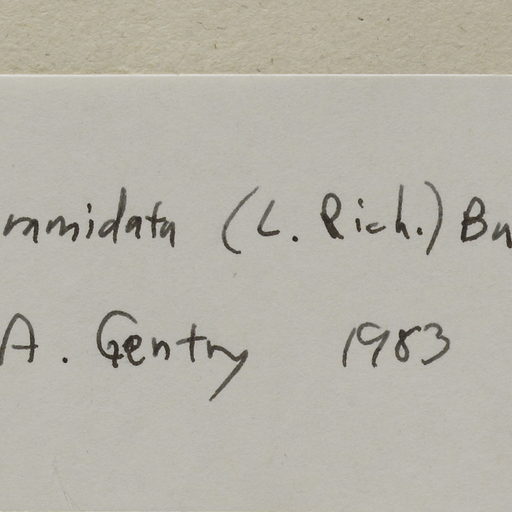 ramidata (L. Rich.) Bu
A. Gentry 1983